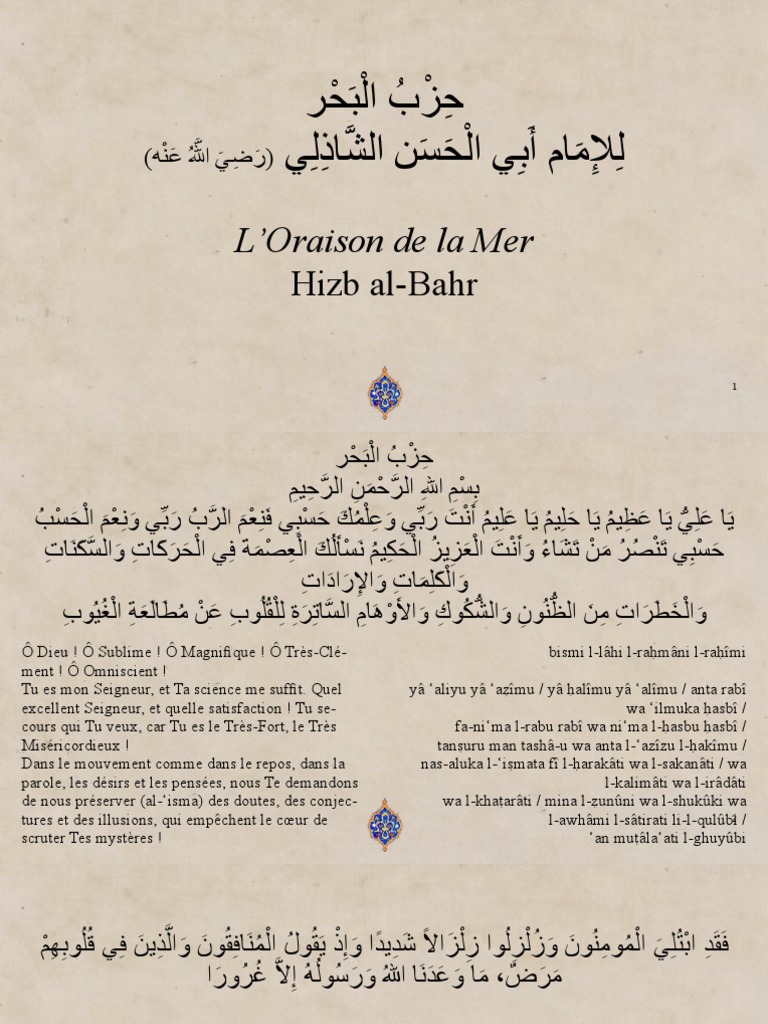 حِزْبُ الْبَحْر
لِلإِمَام أَبِي الْحَسَن الشَّاذِلِي (رَضِيَ اللَّهُ عَنْه)
L’Oraison de la Mer
Hizb al-Bahr
1
حِزْبُ الْبَحْر
بِسْمِ اللهِ الرَّحْمَنِ الرَّحِيمِ
يَا عَلِيُّ يَا عَظِيمُ يَا حَلِيمُ يَا عَلِيمُ أَنْتَ رَبِّي وَعِلْمُكَ حَسْبِي فَنِعْمَ الرَّبُ رَبِّي وَنِعْمَ الْحَسْبُ
حَسْبِي تَنْصُرُ مَنْ تَشَاءُ وَأَنْتَ الْعَزِيزُ الْحَكِيمُ نَسْأَلُكَ الْعِصْمَةَ فِي الْحَرَكَاتِ وَالسَّكَنَاتِ
وَالْكَلِمَاتِ وَالإِرَادَاتِ
وَالْخَطَرَاتِ مِنَ الظُّنُونِ وَالشُّكُوكِ وَالأَوْهَامِ السَّاتِرَةِ لِلْقُلُوبِ عَنْ مُطَالَعَةِ الْغُيُوبِ
Ô Dieu ! Ô Sublime ! Ô Magnifique ! Ô Très-Clé-
ment ! Ô Omniscient !
Tu es mon Seigneur, et Ta science me suffit. Quel
excellent Seigneur, et quelle satisfaction ! Tu se-
cours qui Tu veux, car Tu es le Très-Fort, le Très
Miséricordieux !
Dans le mouvement comme dans le repos, dans la
parole, les désirs et les pensées, nous Te demandons
de nous préserver (al-‘isma) des doutes, des conjec-
tures et des illusions, qui empêchent le cœur de
scruter Tes mystères !
bismi l-lâhi l-raḥmâni l-raḥîmi
yâ ‘aliyu yâ ‘aẓîmu / yâ ḥalîmu yâ ‘alîmu / anta rabî
wa ‘ilmuka ḥasbî /
fa-ni‘ma l-rabu rabî wa ni‘ma l-ḥasbu ḥasbî /
tanṣuru man tashâ-u wa anta l-‘azîzu l-ḥakîmu /
nas-aluka l-‘iṣmata fî l-ḥarakâti wa l-sakanâti / wa
l-kalimâti wa l-irâdâti
wa l-khaṭarâti / mina l-ẓunûni wa l-shukûki wa
l-awhâmi l-sâtirati li-l-qulûbi /
‘an muṭâla‘ati l-ghuyûbi
فَقَدِ ابْتُلِيَ الْمُومِنُونَ وَزُلْزِلُوا زِلْزَالاً شَدِيدًا وَإِذْ يَقُولُ الْمُنَافِقُونَ وَالَّذِينَ فِي قُلُوبِهِمْ
مَرَضٌ، مَا وَعَدَنَا اللهُ وَرَسُولُهُ إِلاَّ غُرُورَا